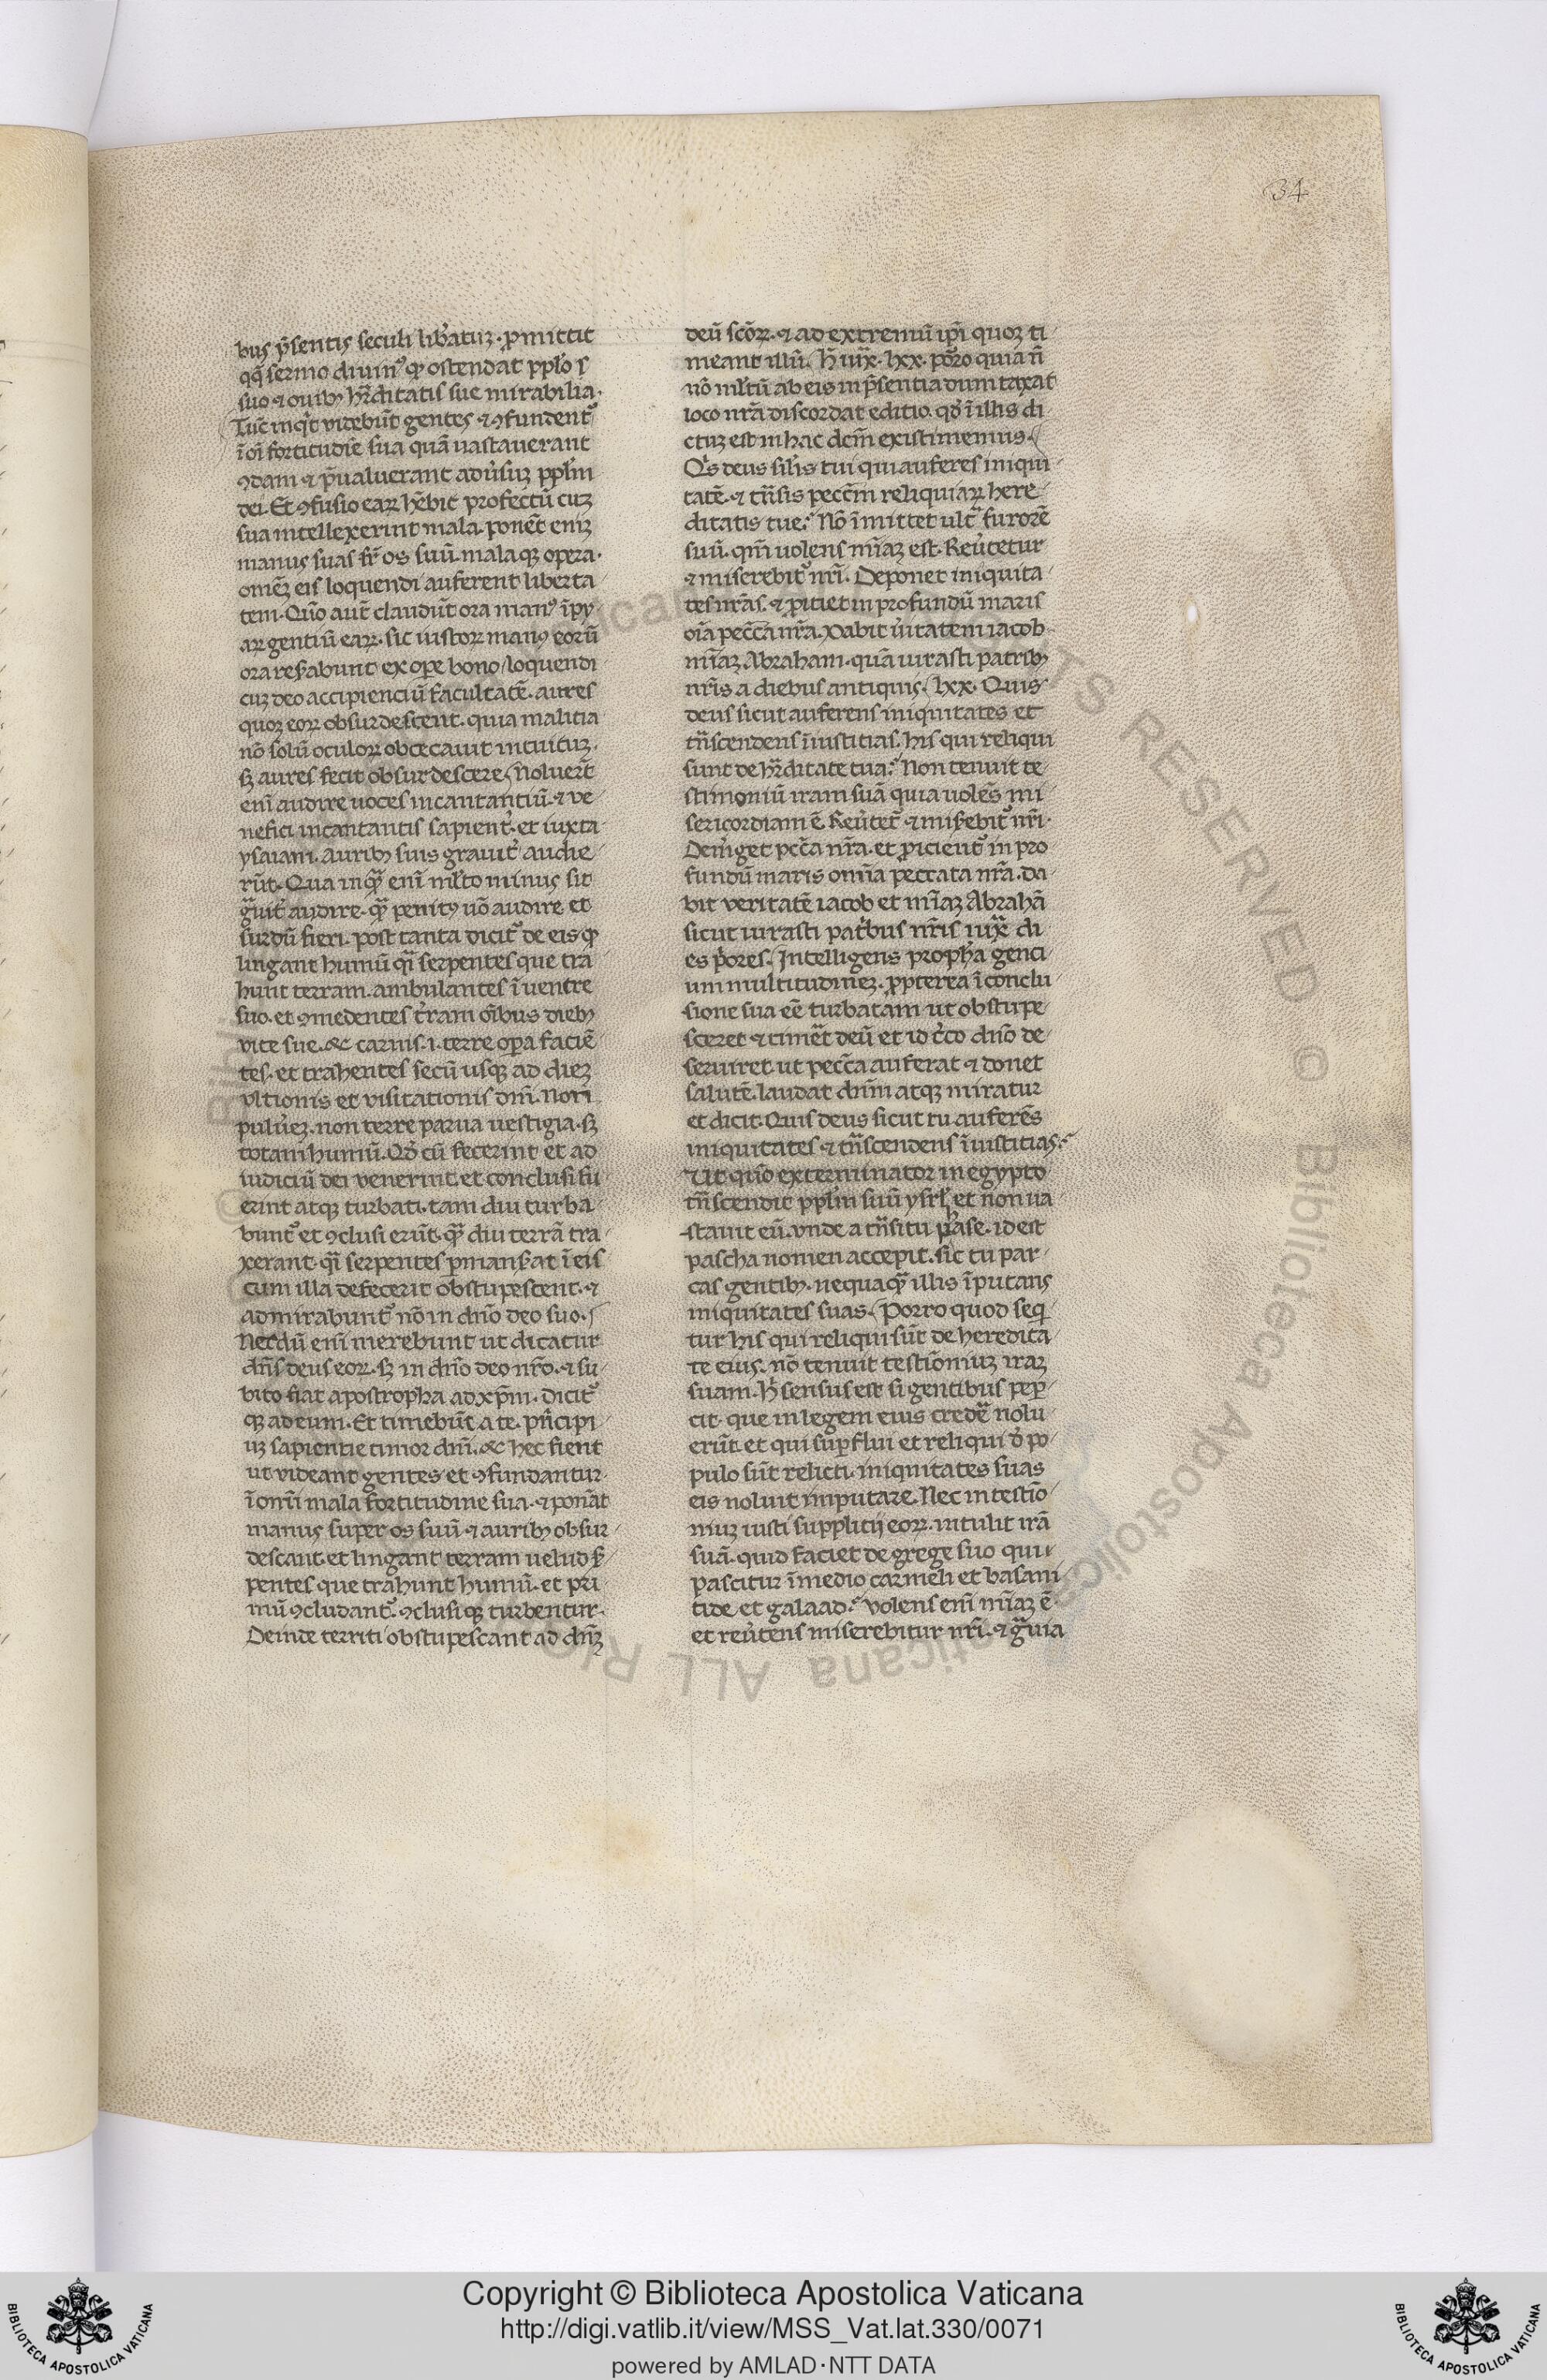 34
bus p̄sentis seculi lib̾atuȝ · ꝓmittit
qq̄ sermo diuin᷒ qꝫ ostendat ppl̓o s
suo ⁊ ouibꝫ hr̄ditatis sue mirabilia ·
Tūc inq̇t videbūt gentes ⁊ ꝯfundent᷒
ī oī fortitudīe sua quā uastauerant
ꝯdam ⁊ p̄ualuerant adu̓suȝ ppl̓m
dei. Et ꝯfusio eaꝝ hēbit profectū cuȝ
sua intellexerint mala. ponēt eniȝ
manus suas sr̄ os suū. malaqꝫ opera ·
omēȝ eis loquendi auferent liberta
tem. Quō aut̄ claudūt ora man᷒ īpy
aꝝ gentiū eaꝝ. sic iustoꝝ manꝰ eorū
ora res̓abunt ex oꝑe bono loquendi
cuȝ deo accipienciū facultatē. aures
quoqꝫ eoꝝ obsurdescent. quia malitia
nō solū oculoꝝ obcecauit intuituȝ.
sȝ aures fecit obsurdescere. noluert̄
enī audire uoces incantantiū. ⁊ ve
nefici incantantis sapient̓. et iuxta
ysaiam. Auribꝫ suis grauit̓ audie
rūt. Qua inqꝫ enī ml̓to minus sit
gᵃuit̓ audire. qꝫ penitꝰ nō audire et
surdū fieri. post tanta dicit᷒ de eis qꝫ
lingant humū qͣi serpentes que tra
hunt terram. ambulantes ī uentre
suo. et ꝯmedentes t̓ram oībus diebꝫ
vite sue. ⁊c carnis. i. terre oꝑa faciē
tes. et trahentes secū usqꝫ ad dieȝ
ultionis et visitationis dnī. non
pulu̓eȝ. non terre parua uestigia. sȝ
totam humū. Qd̓ cū fecerint et ad
iudiciū dei venerint. et conclusi fu
erint atqꝫ turbati. tam diu turba
bunt᷒ et ꝯclusi erūt. qꝫ diu terrā tra
xerant. qͣi serpentes ꝑmans̓at ī eis
cum illa defecerit obstupescent. ⁊
admirabunt᷒ nō in dnō deo suo.
Necdū enī merebunt ut dicatur
dn̄s deus eoꝝ. sȝ in dnō deo nr̄o. ⁊ su
bito fiat apostropha ad xp̄m. dicit᷒
qꝫ ad eum. Et timebūt a te. pn̓cipi
uȝ sapientie timor dnī. ⁊c hec fient
ut videant gentes et ꝯfundantur.
ī omī mala fortitudine sua. ⁊ ponāt
manus super os suū. ⁊ auribꝫ obsur
descant. et lingant terram uelud s̓
pentes que trahunt humū. et pri
mū ꝯcludant᷒. ꝯclusiqꝫ turbentur.
Deinde territi obstupescant ad dn̄ȝ
deū sc̄oꝝ. ⁊ ad extremū ip̄i quoqꝫ ti
meant illū. H̓ iuxͣ. lxx. porro quia n̄
nō ml̓tū ab eis in p̄sentia dum taxat
loco nr̄a discordat editio. qd̓ ī illis di
ctuȝ est in hac dcm̄ existimemus.
Qis deus sil̓is tui qui auferes iniqui
tatē. ⁊ tn̄sis pecc̄m reliquiaꝝ here
ditatis tue? Nō īmittet ult᷒ furorē
suū. qm̄ uolens mīaȝ est. Reu̓tetur
⁊ miserebit᷒ nr̄i. Deponet iniquita
tes nr̄as. ⁊ ꝓitiet in profundū maris
oīa pecc̄a nr̄a. Dabit u̓itatem iacob
mīaȝ Abraham. quā iurasti patribꝫ
nr̄is a diebus antiquis. lxx. Quis
deus sicut auferens iniquitates et
tn̄scendens īiustitias. his qui reliqui
sunt de hr̄ditate tua? Non tenuit te
stimoniū iram suā quia uolēs mi
sericordiam ē. Reu̓tet᷒ ⁊ mis̓ebit᷒ nr̄i.
Dem̓get pcc̄a nr̄a. et ꝓicient᷒ in pro
fundū maris omīa peccata nr̄a. da
bit veritatē iacob et mīaȝ Abrahā
sicut iurasti pat̓bus nr̄is iuxͣ di
es p̓ores. Intelligens propha genci
um multitudineȝ. ꝓpterea ī conclu
sione sua eē turbatam ut obstupe
sceret ⁊ timēt deū et idc̓co dnō de
seruiret. ut pecc̄a auferat ⁊ donet
salutē. laudat dnm̄ atqꝫ miratur
et dicit. Quis deus sicut tu. auferēs
iniquitates ⁊ tn̄scendens īiustitias?
Ut quō exterminator in egypto
tn̄scendit ppl̓m suū ysrl̓ et non ua
stauit eū. vnde a tn̄situ phase. id est
pascha nomen accepit. sic tu par
cas gentibꝫ. nequaqꝫ illis īputans
iniquitates suas. Porro quod seqͥ
tur his qui reliqui sūt de heredita
te eius. nō tenuit testiōniuȝ iraȝ
suam. H̓ sensus est si gentibus peꝑ
cit. que in legem eius credē nolu
erūt. et qui suꝑflui et reliqui d̓ po
pulo sūt relicti. iniquitates suas
eis noluit imputare. Nec in testiō
niuȝ iusti supplitij eoꝝ. intulit irā
suā. quid faciet de grege suo qui
pascitur ī medio carmeli et basani
tide et galaad? volens enī mīaȝ ē.
et reu̓tens miserebitur nr̄i. ⁊ gᵃuia
Copyright © Biblioteca Apostolica Vaticana
http://digi.vatlib.it/view/MSS_Vat.lat.330/0071
powered by AMLAD·NTT DATA